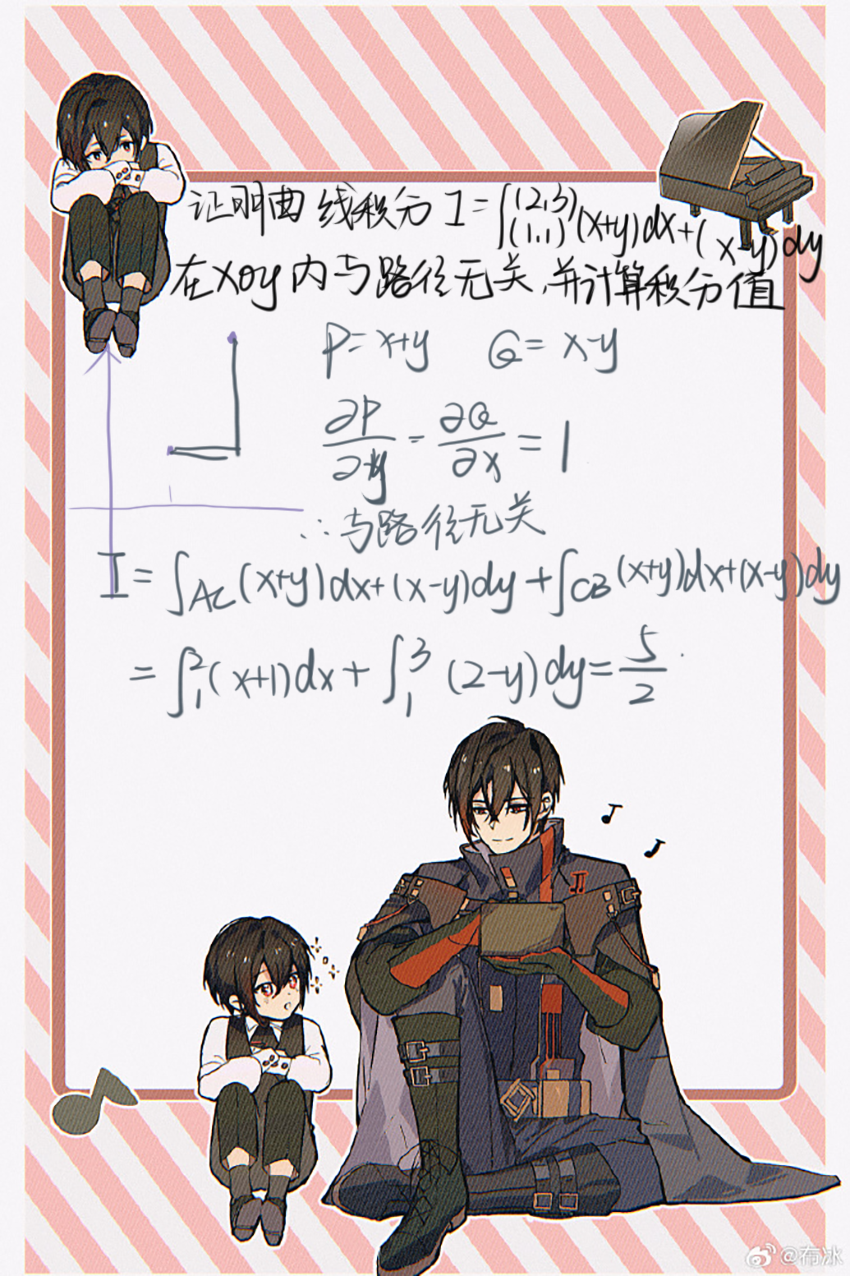 证明曲线积分 I=∫(1,1)(2,3)(x+y)dx+(x-y)dy
在xoy内与路径无关,并计算积分值
P=x+y Q=x-y
∂P/∂y=∂Q/∂x=1
∴与路径无关
I=∫AC(x+y)dx+(x-y)dy+∫CB(x+y)dx+(x-y)dy
=∫₁²(x+1)dx+∫₁³(2-y)dy=5/2
@布冰